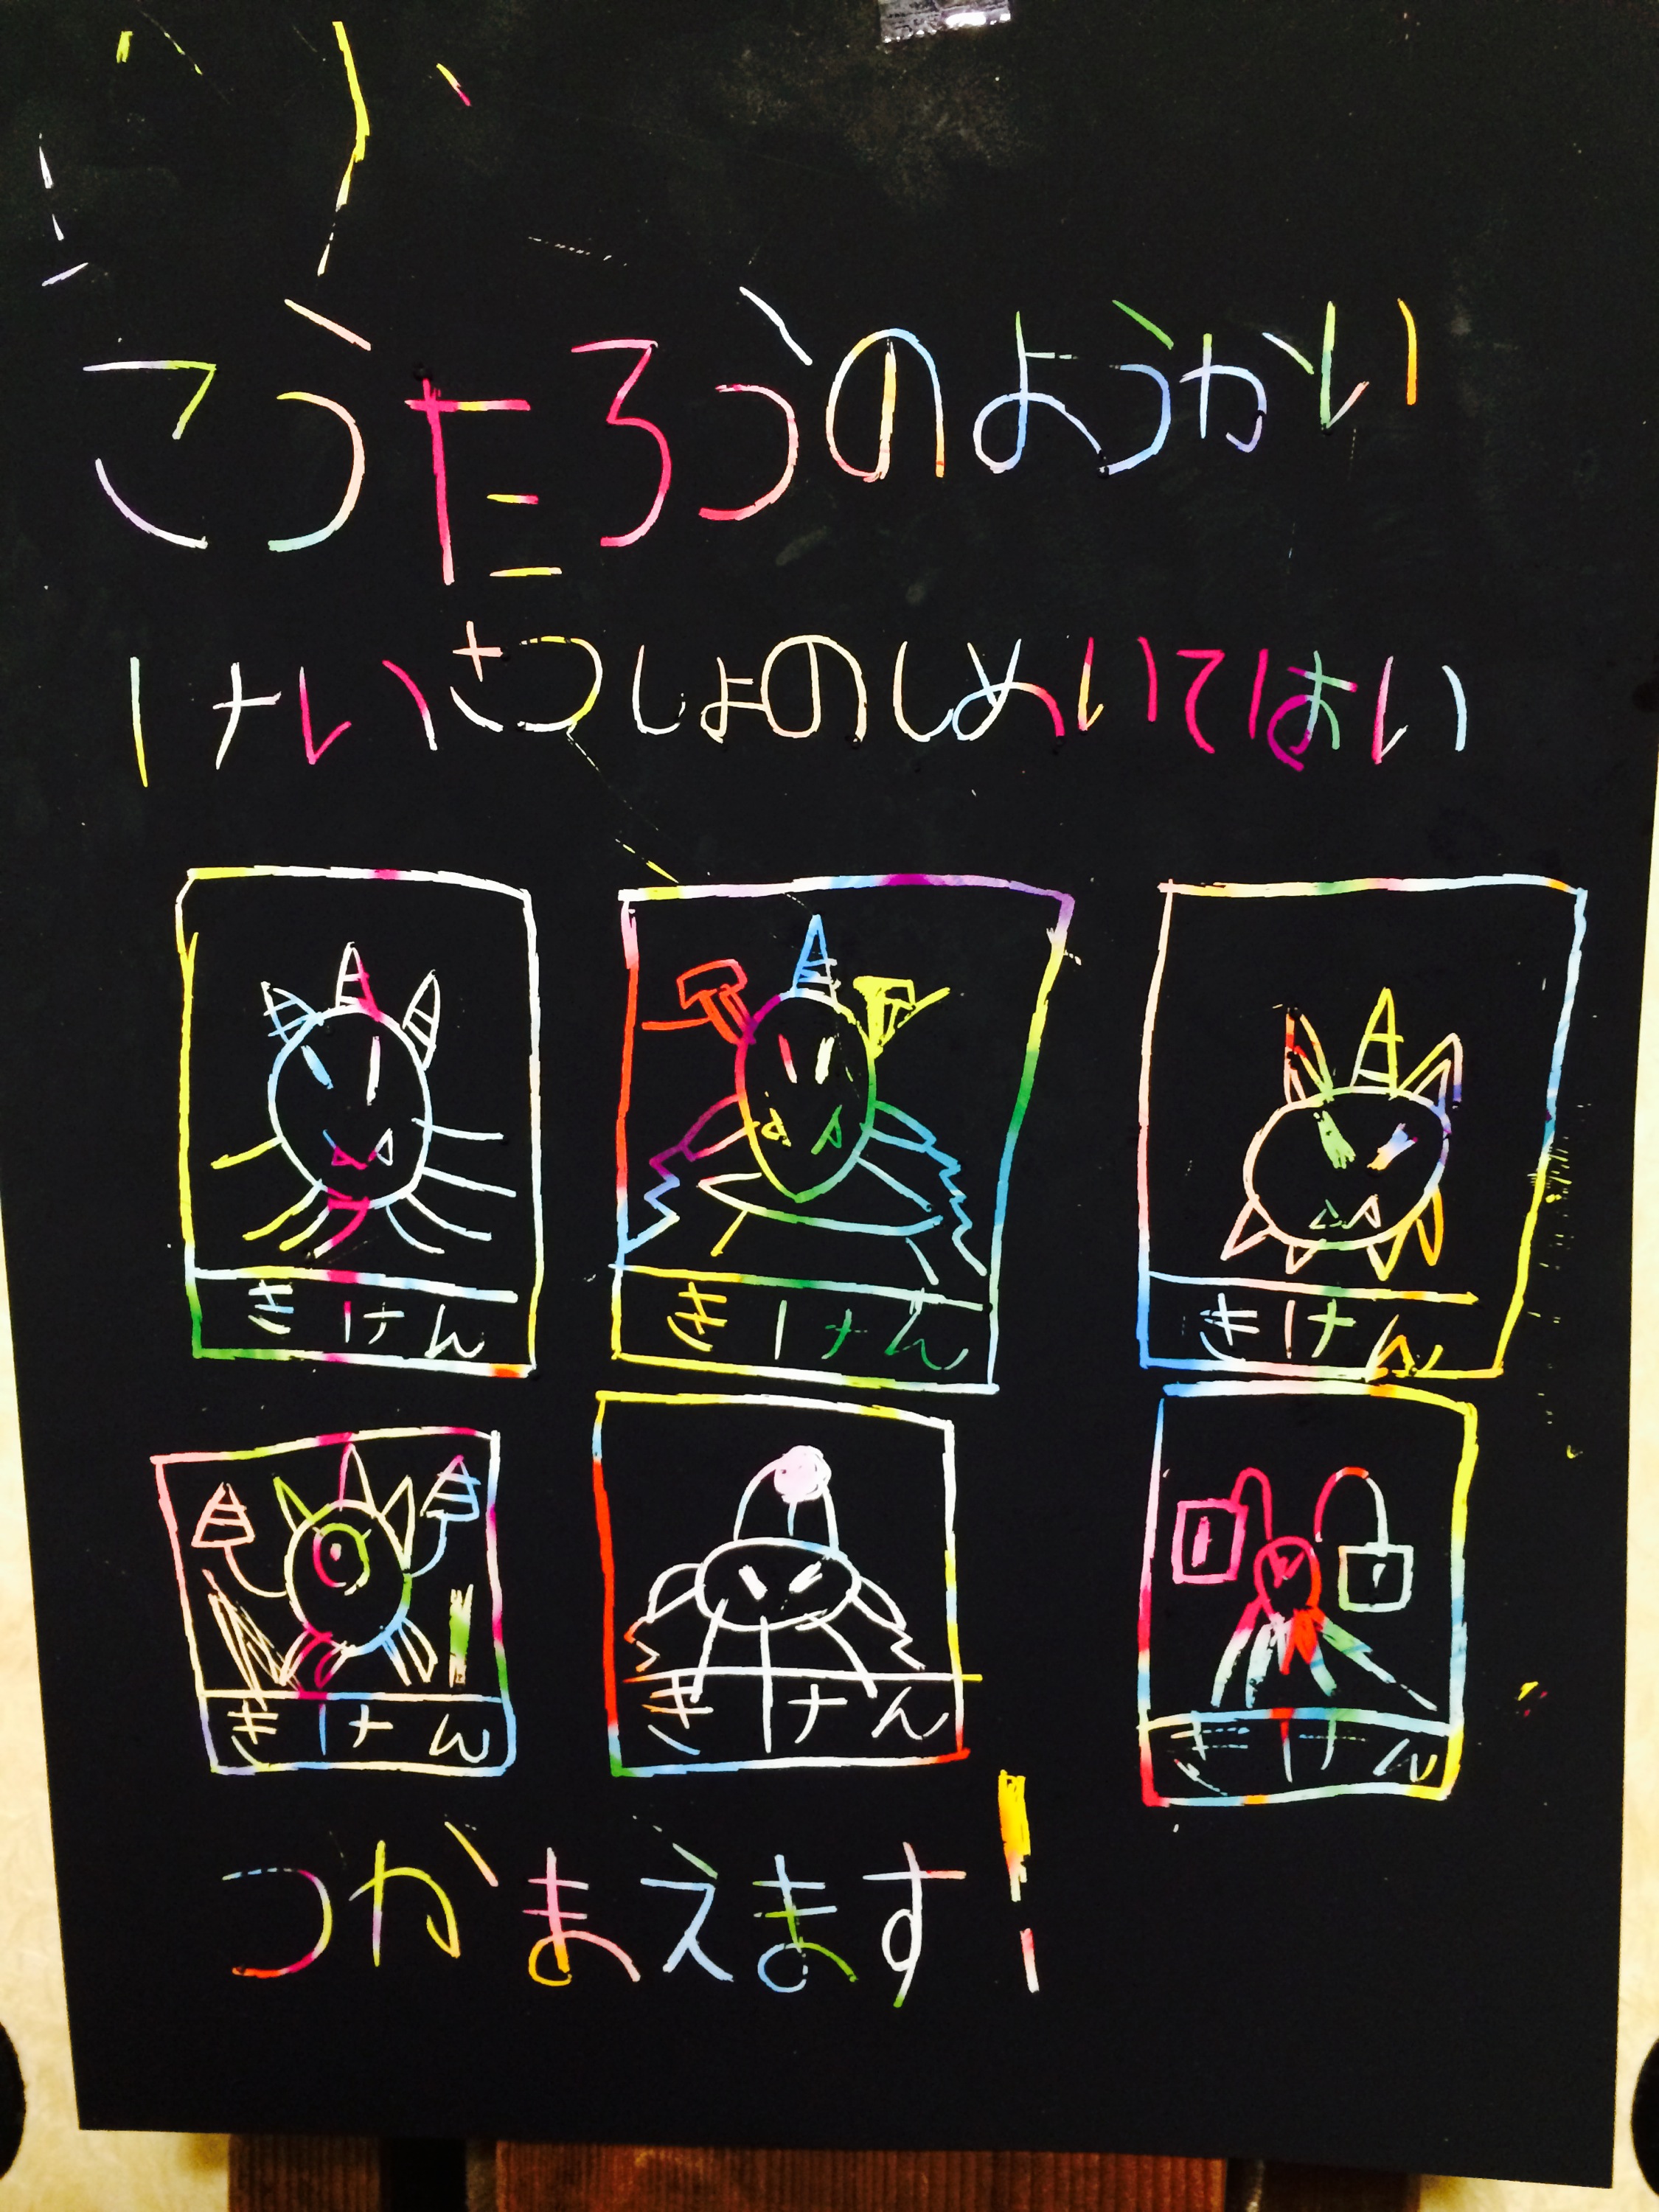 こうたろうのようかい
けいさつしょのしめいてはい
きけん
きけん
きけん
きけん
きけん
きけん
つかまえます!